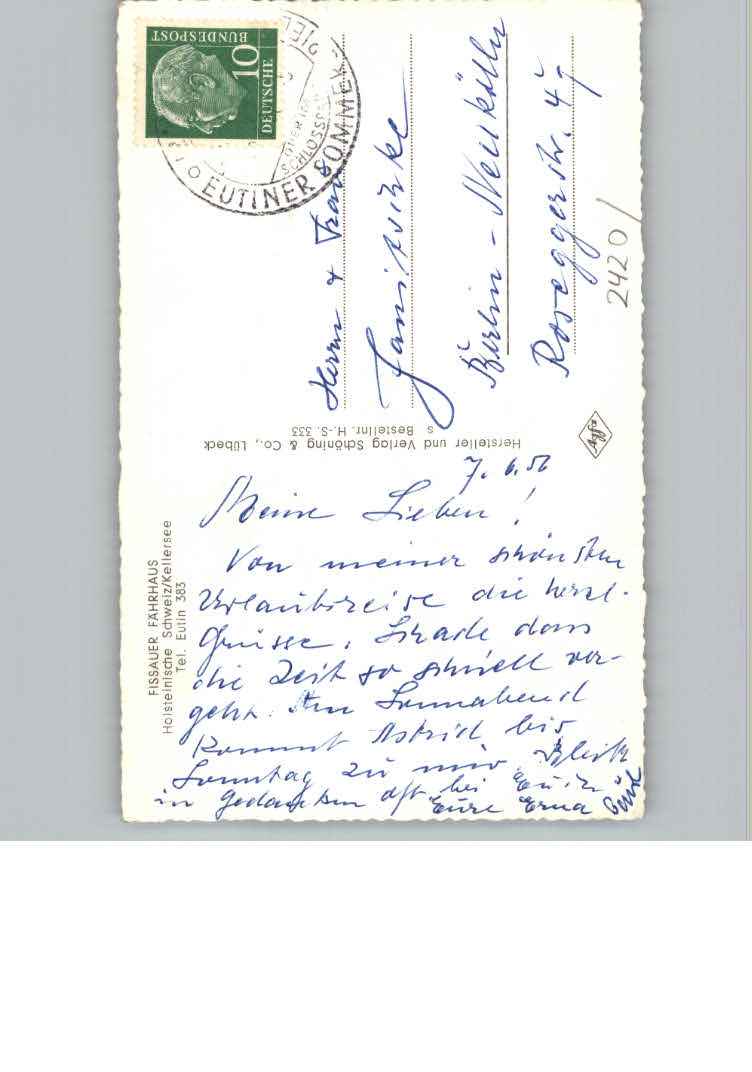 DEUTSCHE
BUNDESPOST
10
EUTINER SOMMER
SCHLOSS
Herrn & Frau
Janitschke
Berlin-Neukölln
Roseggerstr. 49
2420/
Hersteller und Verlag Schöning & Co., Lübeck
s Bestellnr. H.-S. 333
Agfa
FISSAUER FÄHRHAUS
Holsteinische Schweiz/Kellersee
Tel. Eutin 383
7. 6. 56
Meine Lieben!
Von meiner schönsten
Urlaubsreise die herzl.
Grüsse. Schade dass
die Zeit so schnell ver-
geht. Am Sonnabend
kommt Astrid bis
Sonntag zu mir.
in Gedanken oft bei Euch
Eure Erna